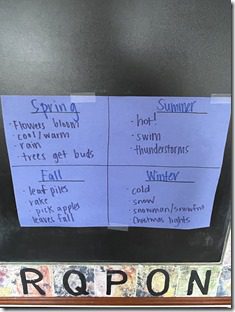 Spring
· Flowers bloom
· cool/warm
· rain
· trees get buds
Summer
· hot!
· swim
· thunderstorms
Fall
· leaf piles
· rake
· pick apples
leaves fall
Winter
· cold
· snow
· snowman/
· Christmas lights
R Q P O N